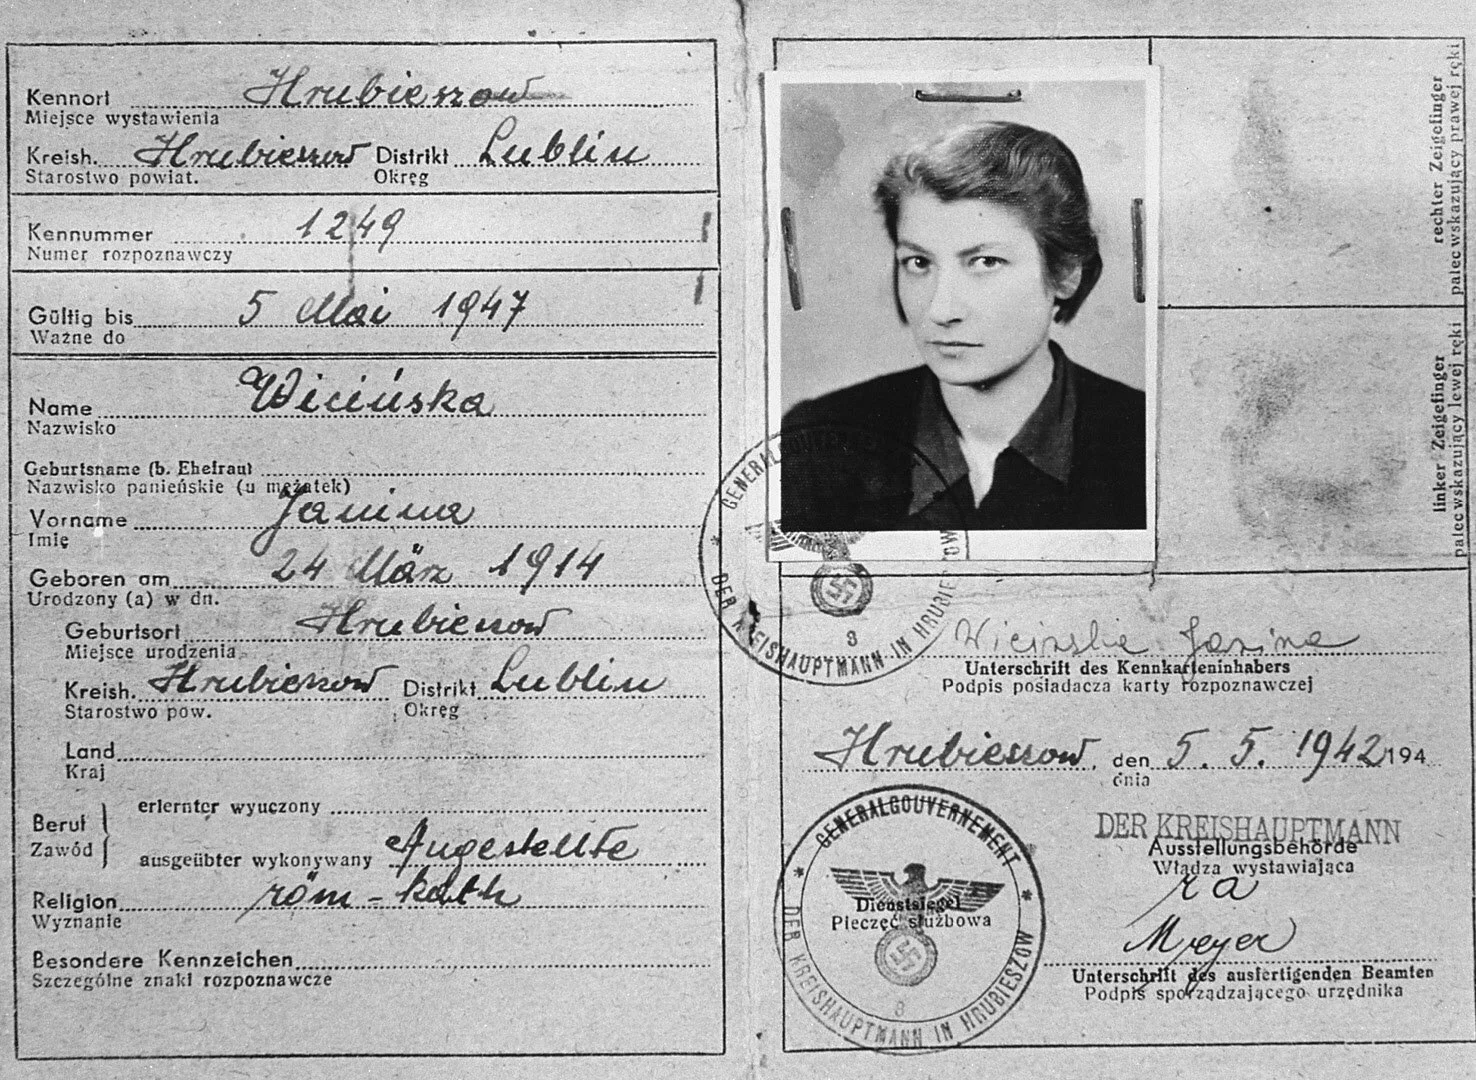 Kennort Hrubieszow
Miejsce wystawienia
Kreish. Hrubieszow Distrikt Lublin
Starostwo powiat. Okręg
Kennummer 1249
Numer rozpoznawczy
Gültig bis 5 Mai 1947
Ważne do
Name Wicińska
Nazwisko
Geburtsname (b. Ehefrau)
Nazwisko panieńskie (u mężatek)
Vorname Janina
Imię
Geboren am 24 März 1914
Urodzony (a) w dn.
Geburtsort Hrubieszow
Miejsce urodzenia
Kreish. Hrubieszow Distrikt Lublin
Starostwo pow. Okręg
Land
Kraj
Beruf
Zawód
erlernter wyuczony
ausgeübter wykonywany Angestellte
Religion röm-kath
Wyznanie
Besondere Kennzeichen
Szczególne znaki rozpoznawcze
rechter Zeigefinger
palec wskazujący prawej ręki
linker Zeigefinger
palec wskazujący lewej ręki
GENERALGOUVERNEMENT
DER KREISHAUPTMANN IN HRUBIESZOW
8
Wicińska Janina
Unterschrift des Kennkarteninhabers
Podpis posiadacza karty rozpoznawczej
Hrubieszow, den 5. 5. 1942 194
dnia
GENERALGOUVERNEMENT
DER KREISHAUPTMANN IN HRUBIESZOW
8
Dienstsiegel
Pieczęć służbowa
DER KREISHAUPTMANN
Ausstellungsbehörde
Władza wystawiająca
Meyer
Unterschrift des ausfertigenden Beamten
Podpis sporządzającego urzędnika